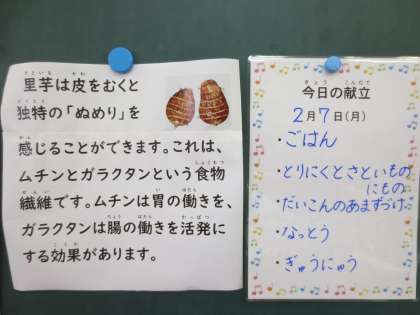 里芋は皮をむくと
独特の「ぬめり」を
感じることができます。これは、
ムチンとガラクタンという食物
繊維です。ムチンは胃の働きを、
ガラクタンは腸の働きを活発に
する効果があります。
今日の献立
2月7日(月)
・ごはん
・とりにくとさといもの
にもの
・だいこんのあまずづけ
・なっとう
・ぎゅうにゅう